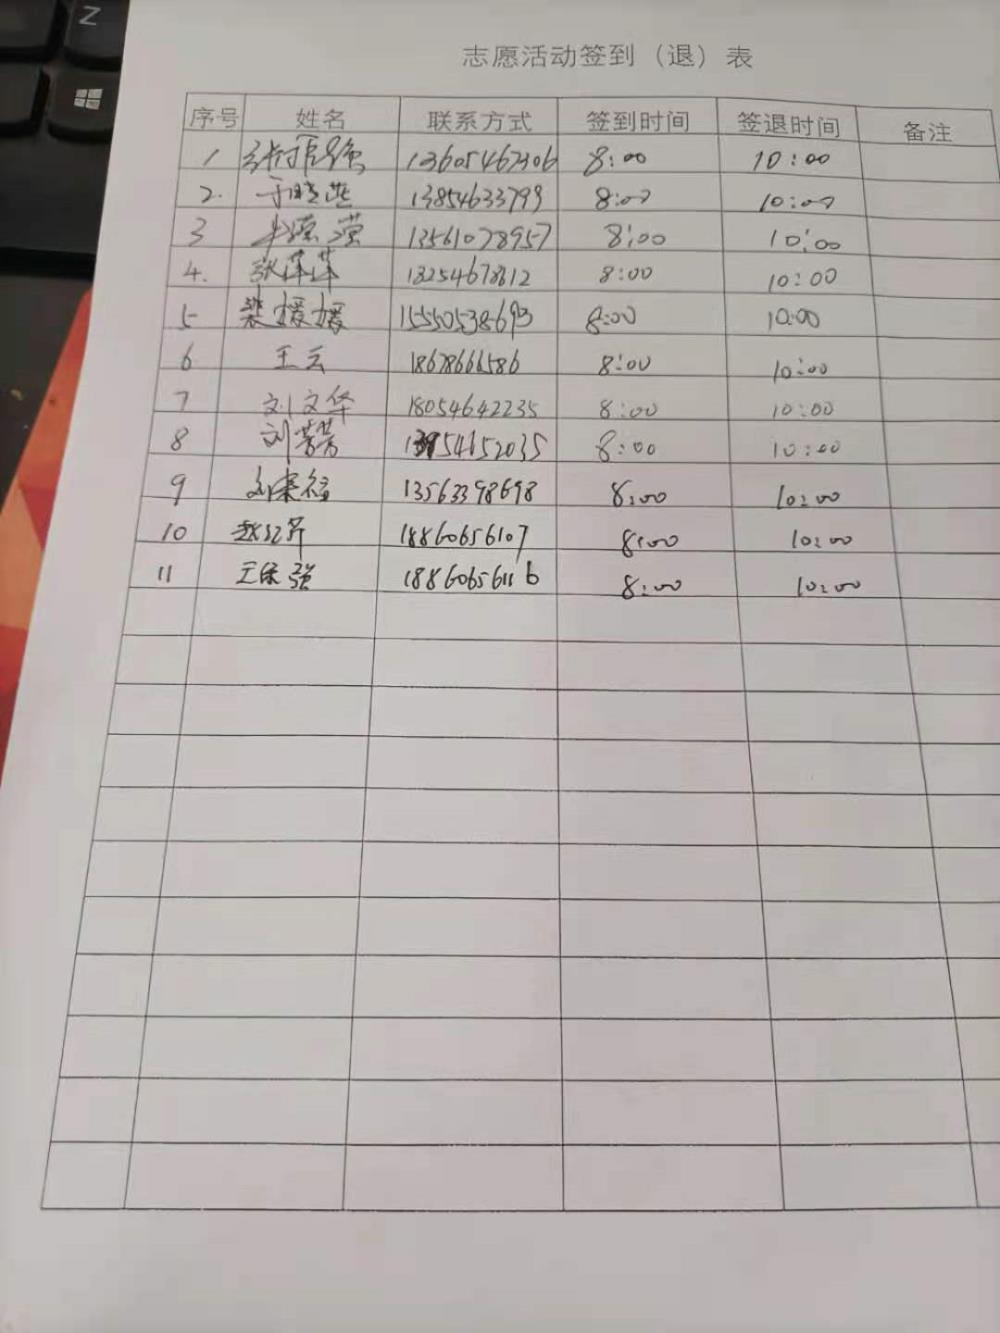 Z
志愿活动签到（退）表
序号 姓名 联系方式 签到时间 签退时间 备注
1 13605462306 8:00 10:00
2. 于晓燕 13854633799 8:00 10:00
3 13561078957 8:00 10:00
4. 张萍萍 8:00 10:00
5 柴媛媛 15550538693 8:00 10:00
6 王云 18678666586 8:00 10:00
7 刘文华 18054642235 8:00 10:00
8 刘芳芳 13954652035 8:00 10:00
9 13563398698 8:00 10:00
10 18860656107 8:00 10:00
11 王保强 18860656116 8:00 10:00